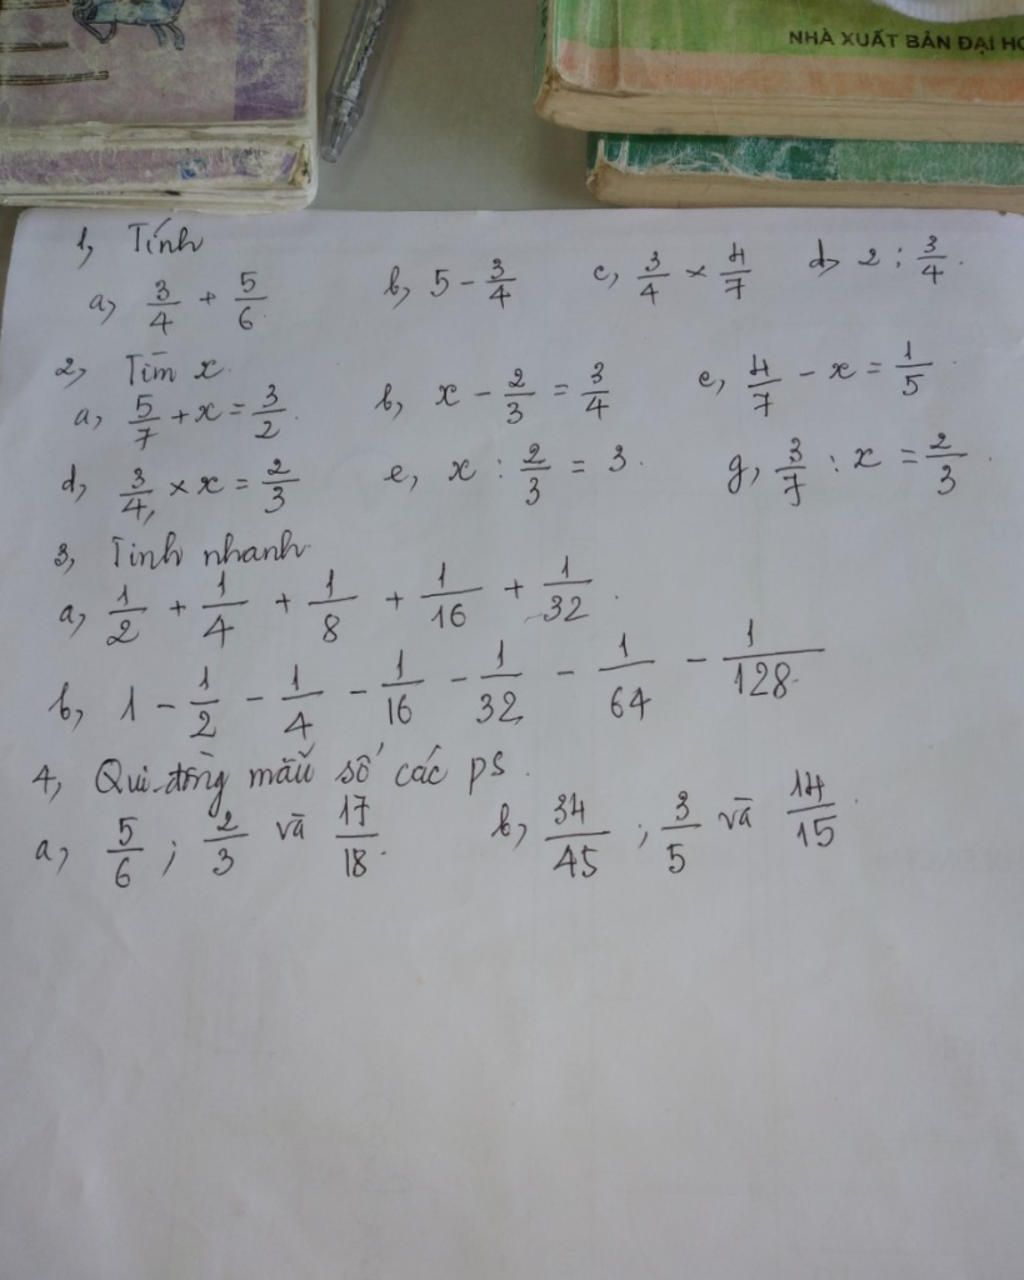 NHÀ XUẤT BẢN ĐẠI HỌ
1, Tính
a, 3/4 + 5/6 b, 5 - 3/4 c, 3/4 × 4/7 d, 2 : 3/4.
2, Tìm x.
a, 5/7 + x = 3/2. b, x - 2/3 = 3/4 c, 4/7 - x = 1/5.
d, 3/4 × x = 2/3 e, x : 2/3 = 3. g, 3/7 : x = 2/3.
3, Tính nhanh.
a, 1/2 + 1/4 + 1/8 + 1/16 + 1/32.
b, 1 - 1/2 - 1/4 - 1/16 - 1/32 - 1/64 - 1/128.
4, Qui đồng mẫu số các ps.
a, 5/6 ; 2/3 và 17/18. b, 34/45 ; 3/5 và 14/15.